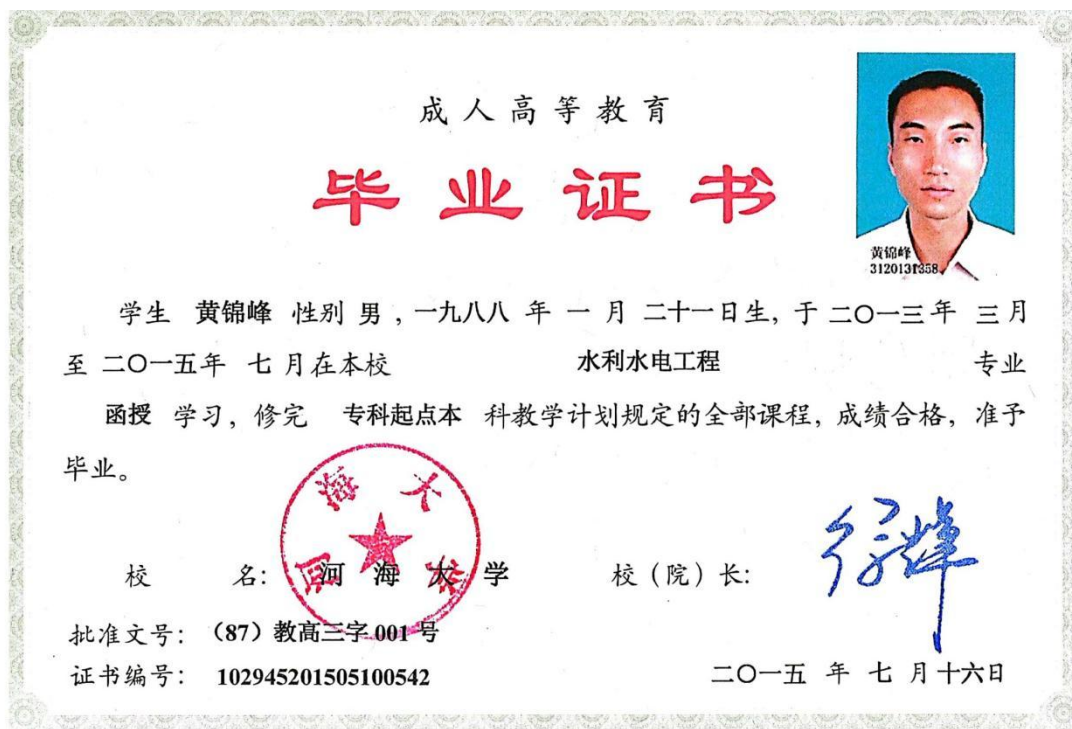 成人高等教育
毕业证书
黄锦峰
3120131358
学生 黄锦峰 性别 男 , 一九八八 年 一 月 二十一日生, 于 二〇一三年 三月
至 二〇一五年 七 月在本校 水利水电工程 专业
函授 学习, 修完 专科起点本 科教学计划规定的全部课程, 成绩合格, 准予
毕业。
河海大学
校 名: 河 海 大 学 校（院）长: 徐辉
批准文号: （87）教高三字 001 号
证书编号: 102945201505100542
二〇一五 年 七 月十六日